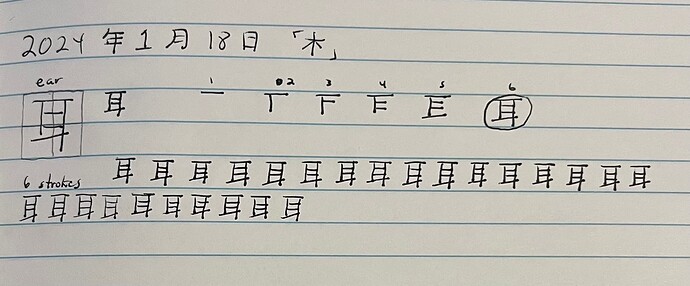 2024年1月18日「木」
ear 1 2 3 4 5 6
耳 耳 一 耳
6 strokes 耳 耳 耳 耳 耳 耳 耳 耳 耳 耳 耳 耳 耳 耳 耳 耳
耳 耳 耳 耳 耳 耳 耳 耳 耳 耳